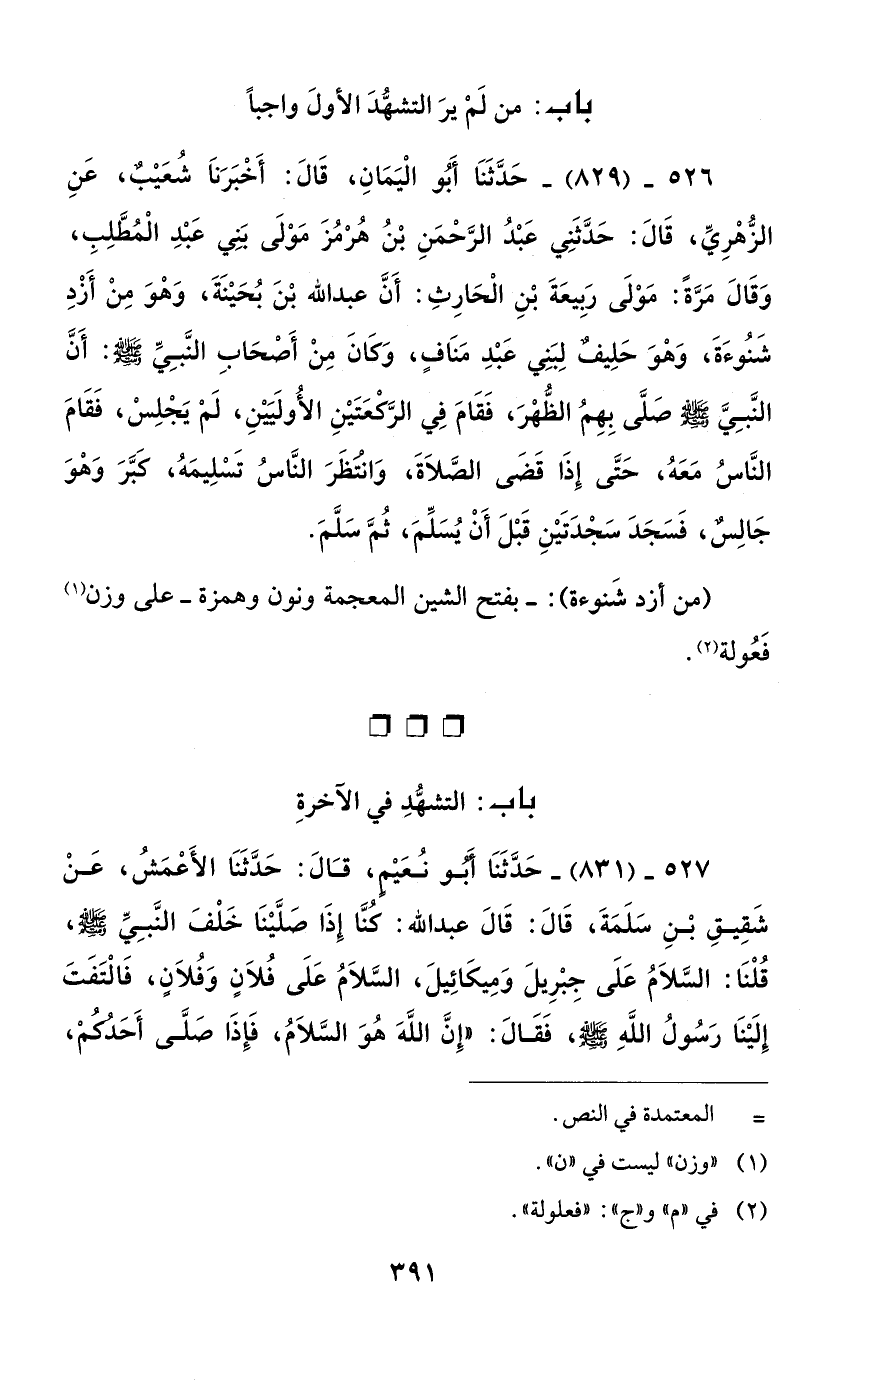 باب: من لَمْ يرَ التشهُّدَ الأولَ واجباً
٥٢٦ ـ (٨٢٩) ـ حَدَّثَنَا أَبُو الْيَمَانِ، قَالَ: أَخْبَرَنَا شُعَيْبٌ، عَنِ
الزُّهْرِيِّ، قَالَ: حَدَّثَنِي عَبْدُ الرَّحْمَنِ بْنُ هُرْمُزَ مَوْلَى بَنِي عَبْدِ الْمُطَّلِبِ،
وَقَالَ مَرَّةً: مَوْلَى رَبِيعَةَ بْنِ الْحَارِثِ: أَنَّ عبدالله بْنَ بُحَيْنَةَ، وَهْوَ مِنْ أَزْدِ
شَنُوءَةَ، وَهْوَ حَلِيفٌ لِبَنِي عَبْدِ مَنَافٍ، وَكَانَ مِنْ أَصْحَابِ النَّبِيِّ ﷺ: أَنَّ
النَّبِيَّ ﷺ صَلَّى بِهِمُ الظُّهْرَ، فَقَامَ فِي الرَّكْعَتَيْنِ الأُولَيَيْنِ، لَمْ يَجْلِسْ، فَقَامَ
النَّاسُ مَعَهُ، حَتَّى إِذَا قَضَى الصَّلاَةَ، وَانْتَظَرَ النَّاسُ تَسْلِيمَهُ، كَبَّرَ وَهْوَ
جَالِسٌ، فَسَجَدَ سَجْدَتَيْنِ قَبْلَ أَنْ يُسَلِّمَ، ثُمَّ سَلَّمَ.
(من أزد شَنوءة): ـ بفتح الشين المعجمة ونون وهمزة ـ على وزن(١)
فَعُولة(٢).
باب: التشهُّدِ في الآخرةِ
٥٢٧ ـ (٨٣١) ـ حَدَّثَنَا أَبُو نُعَيْمٍ، قَالَ: حَدَّثَنَا الأَعْمَشُ، عَنْ
شَقِيقِ بْنِ سَلَمَةَ، قَالَ: قَالَ عبدالله: كُنَّا إِذَا صَلَّيْنَا خَلْفَ النَّبِيِّ ﷺ،
قُلْنَا: السَّلاَمُ عَلَى جِبْرِيلَ وَمِيكَائِيلَ، السَّلاَمُ عَلَى فُلاَنٍ وَفُلاَنٍ، فَالْتَفَتَ
إِلَيْنَا رَسُولُ اللَّهِ ﷺ، فَقَالَ: «إِنَّ اللَّهَ هُوَ السَّلاَمُ، فَإِذَا صَلَّى أَحَدُكُمْ،
= المعتمدة في النص.
(١) «وزن» ليست في «ن».
(٢) في «م» و«ج»: «فعلولة».
٣٩١